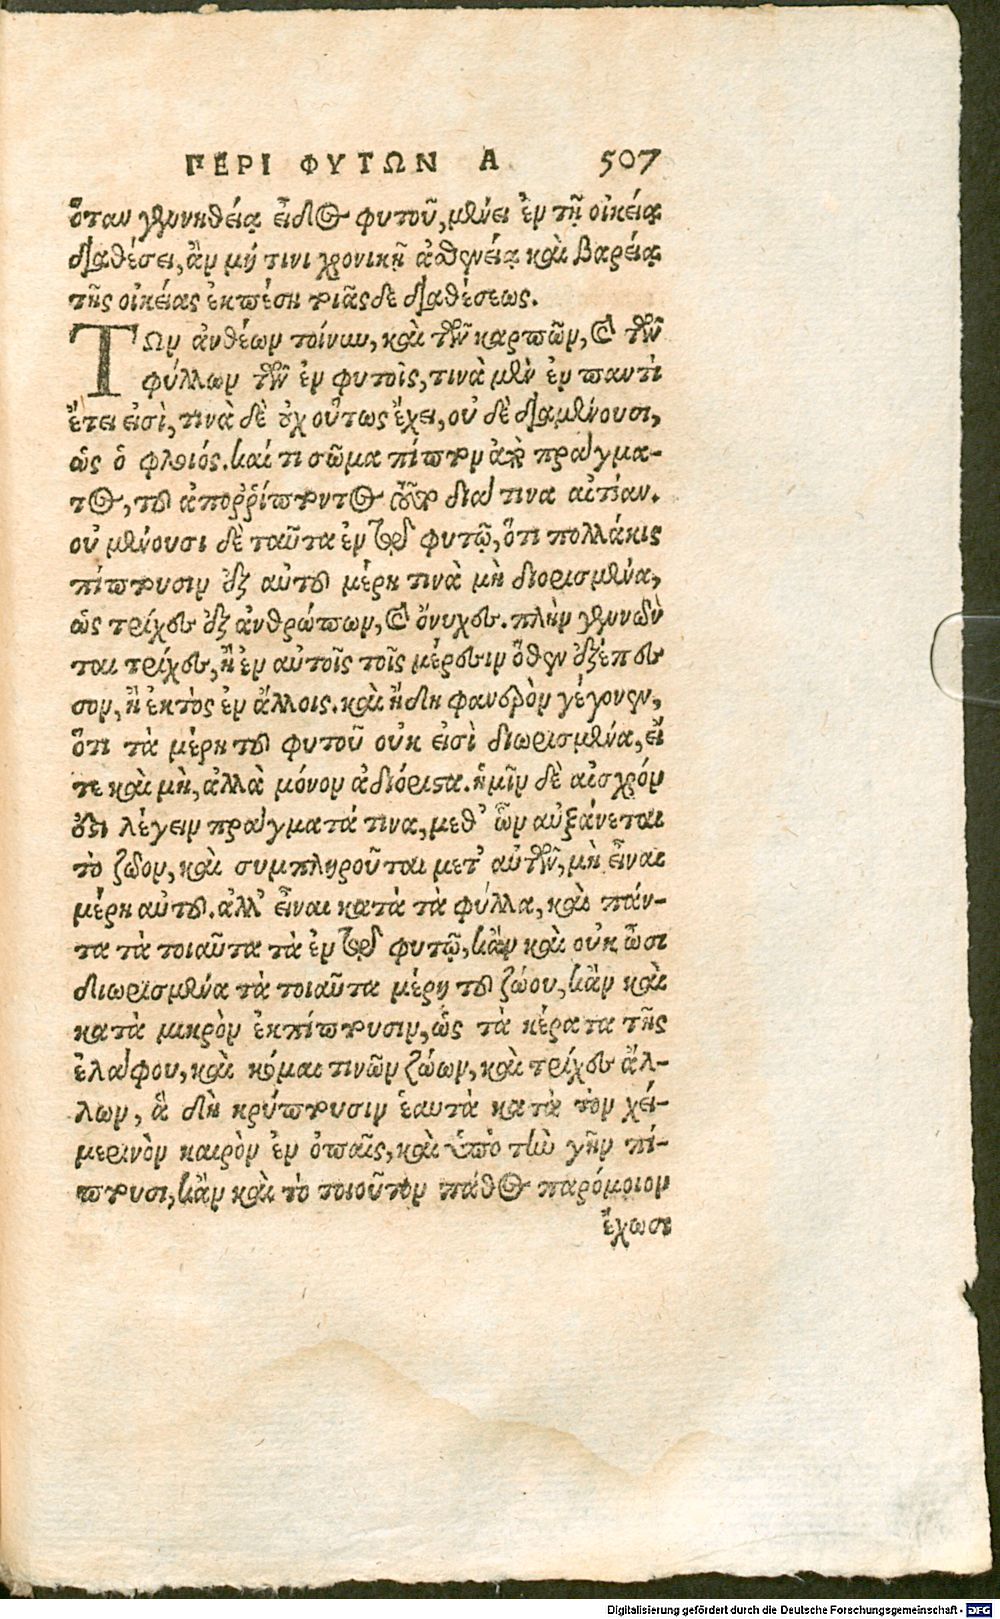 ΠΕΡΙ ΦΥΤΩΝ Α 507
ὅταν γεννηθείᾳ εἶδος φυτοῦ, μένει ἐν τῇ οἰκείᾳ
διαθέσει, ἂν μή τινι χρονικῇ ἀσθενείᾳ καὶ βαρείᾳ
τῆς οἰκείας ἐκπέσῃ τοιᾶσδε διαθέσεως.
ΤΩν ἀνθέων τοίνυν, καὶ τῶν καρπῶν, καὶ τῶν
φύλλων τῶν ἐν φυτοῖς, τινὰ μὲν ἐν παντὶ
ἔτει εἰσὶ, τινὰ δὲ οὐχ οὕτως ἔχει, οὐδὲ διαμένουσι,
ὡς ὁ φλοιός. καί τι σῶμα πίπτον ἀπὸ πράγμα-
τος, τοῦ ἀποῤῥίπτοντος τοῦτο διά τινα αἰτίαν.
οὐ μένουσι δὲ ταῦτα ἐν τῷ φυτῷ, ὅτι πολλάκις
πίπτουσιν ἐξ αὐτοῦ μέρη τινὰ μὴ διορισμένα,
ὡς τρίχες ἐξ ἀνθρώπων, καὶ ὄνυχες. πλὴν γεννῶν
ται τρίχες, ἢ ἐν αὐτοῖς τοῖς μέρεσιν ὅθεν ἐξέπε
σον, ἢ ἐκτὸς ἐν ἄλλοις. καὶ ἤδη φανερὸν γέγονεν,
ὅτι τὰ μέρη τοῦ φυτοῦ οὐκ εἰσὶ διωρισμένα, εἴ
τε καὶ μὴ, ἀλλὰ μόνον ἀδιόριστα. ἡμῖν δὲ αἰσχρόν
ἐστι λέγειν πράγματά τινα, μεθ' ὧν αὐξάνεται
τὸ ζῶον, καὶ συμπληροῦται μετ' αὐτῶν, μὴ εἶναι
μέρη αὐτοῦ. ἀλλ' εἶναι κατὰ τὰ φύλλα, καὶ πάν-
τα τὰ τοιαῦτα τὰ ἐν τῷ φυτῷ, κἂν καὶ οὐκ ὦσι
διωρισμένα τὰ τοιαῦτα μέρη τοῦ ζώου, κἂν καὶ
κατὰ μικρὸν ἐκπίπτουσιν, ὡς τὰ κέρατα τῆς
ἐλάφου, καὶ κόμαι τινῶν ζώων, καὶ τρίχες ἄλ-
λων, ἃ δὴ κρύπτουσιν ἑαυτὰ κατὰ τὸν χει-
μερινὸν καιρὸν ἐν ὀπαῖς, καὶ ὑπὸ τὴν γῆν πί-
πτουσι, κἂν καὶ τὸ τοιοῦτον πάθος παρόμοιον
ἔχωσι
Digitalisierung gefördert durch die Deutsche Forschungsgemeinschaft - DFG